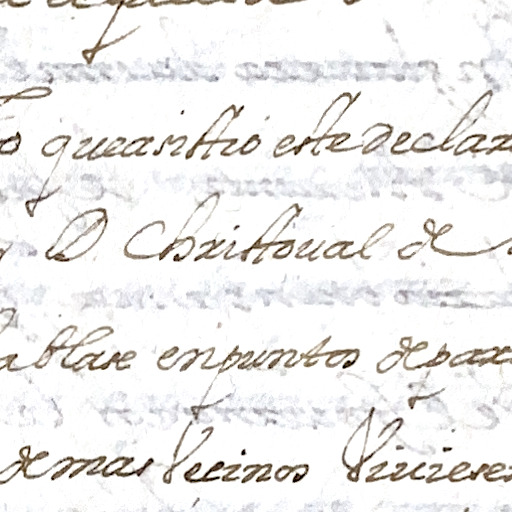 que asistio este declar
D. Christoual de
ablase en puntos de pax
demas Vecinos Viuiese